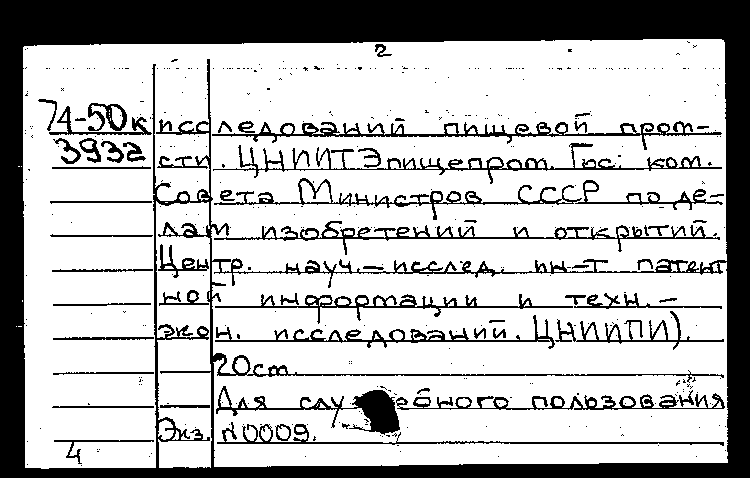 2
74-50к исследований пищевой пром-
3932 сти. ЦНИИТЭпищепром. Гос. ком.
Совета Министров СССР по де-
лам изобретений и открытий.
Центр. науч.-исслед. ин-т патент
ной информации и техн.-
экон. исследований. ЦНИИПИ).
20см.
Для служебного пользования
Экз. N0009.
4